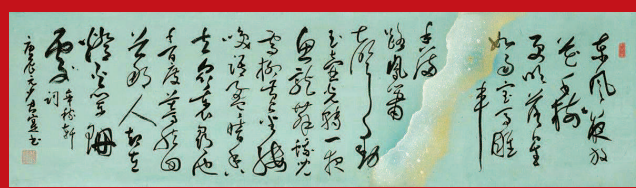 東風夜放
花千樹
更吹落星
如雨寶馬雕
車
香滿
路鳳簫
聲動
玉壺光轉一夜
魚龍舞蛾兒
雪柳黃金縷
笑語盈盈暗香
去眾裏尋他
千百度驀然回
首那人卻在
燈火闌珊
處
辛稼軒
詞